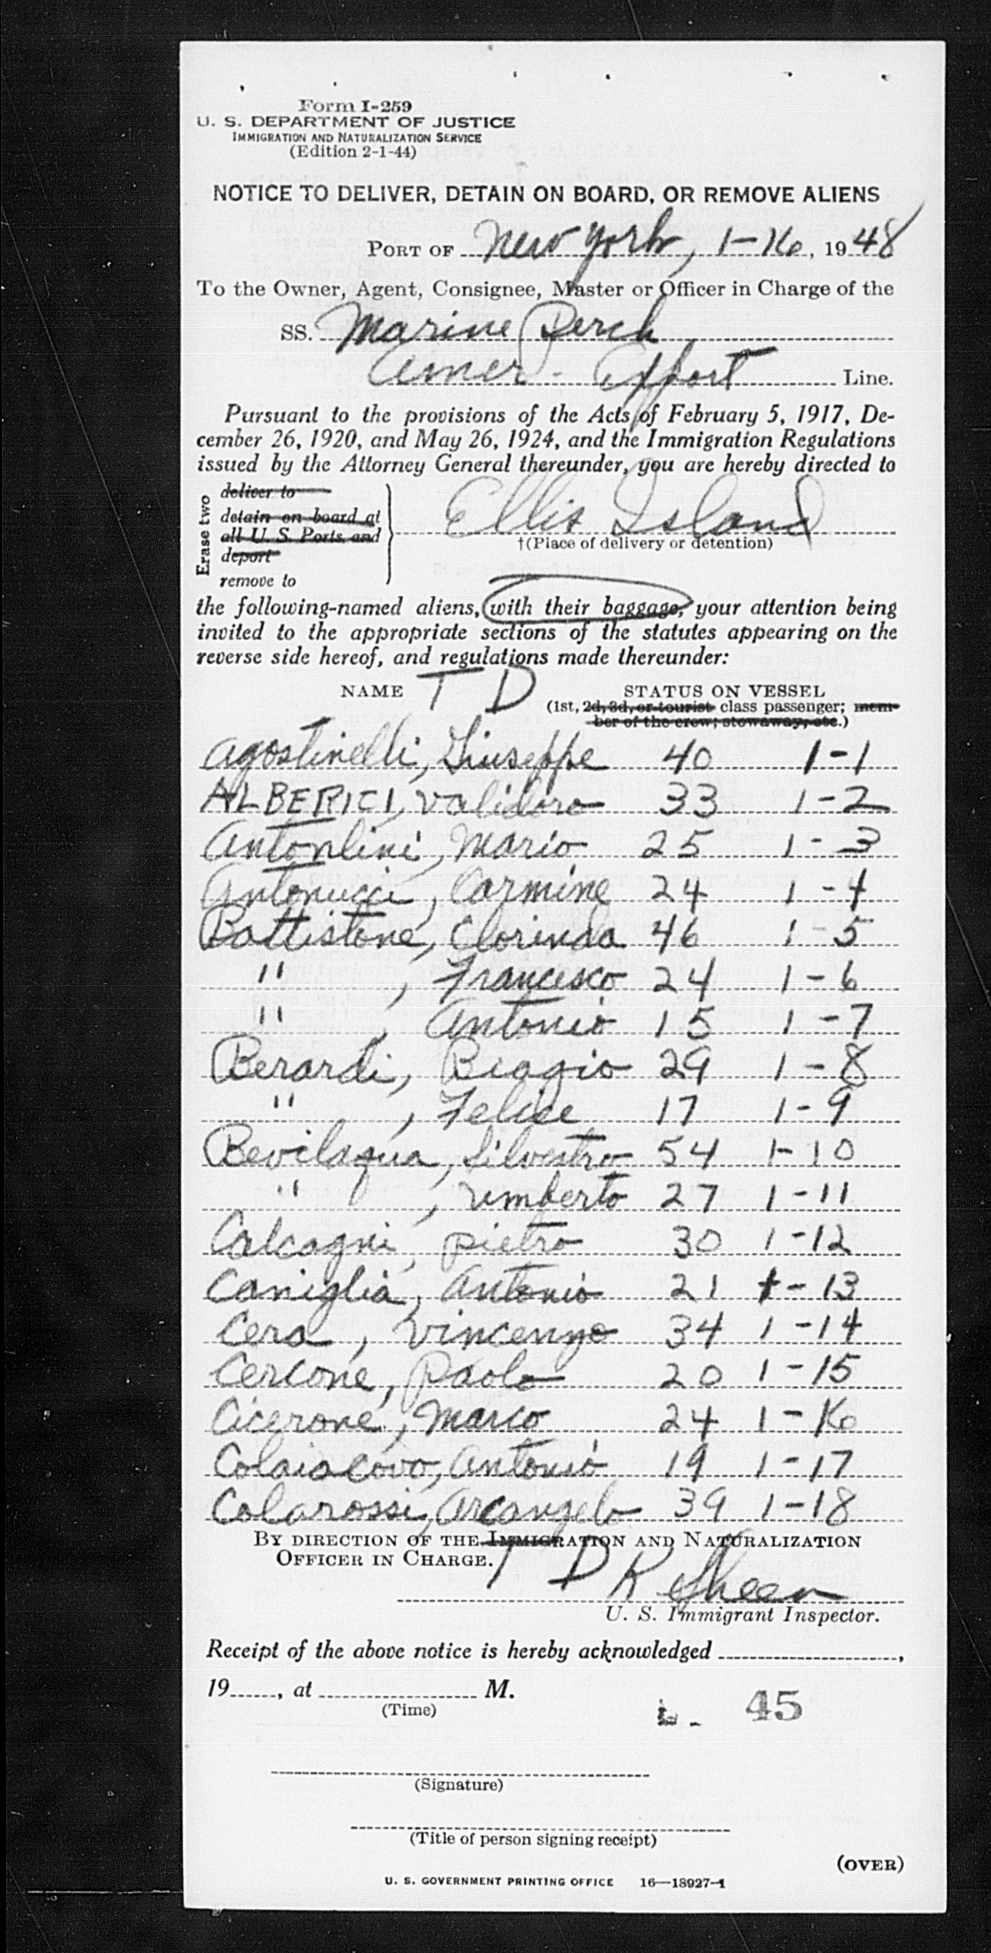 Form I-259
U. S. DEPARTMENT OF JUSTICE
IMMIGRATION AND NATURALIZATION SERVICE
(Edition 2-1-44)
NOTICE TO DELIVER, DETAIN ON BOARD, OR REMOVE ALIENS
PORT OF New York, 1-16, 1948
To the Owner, Agent, Consignee, Master or Officer in Charge of the
SS. Marine Perch
Amer. Export Line.
Pursuant to the provisions of the Acts of February 5, 1917, De-
cember 26, 1920, and May 26, 1924, and the Immigration Regulations
issued by the Attorney General thereunder, you are hereby directed to
Erase two
deliver to
detain on board at
all U. S. Ports, and
deport
remove to
Ellis Island
†(Place of delivery or detention)
the following-named aliens, with their baggage, your attention being
invited to the appropriate sections of the statutes appearing on the
reverse side hereof, and regulations made thereunder:
NAME T D STATUS ON VESSEL
(1st, 2d, 3d, or tourist class passenger; mem-
ber of the crew; stowaway, etc.)
Agostinelli, Giuseppe 40 1-1
ALBERICI, Validoro 33 1-2
Antonlini, Mario 25 1-3
Antonucci, Carmine 24 1-4
Battistone, Clorinda 46 1-5
" , Francesco 24 1-6
" , Antonio 15 1-7
Berardi, Biagio 29 1-8
" , Felice 17 1-9
Bevilaqua, Silvestro 54 1-10
" , Umberto 27 1-11
Calcagni, Pietro 30 1-12
Caniglia, Antonio 21 1-13
Cera, Vincenzo 34 1-14
Cercone, Paolo 20 1-15
Cicerone, Marco 24 1-16
Colaiacovo, Antonio 19 1-17
Colarossi, Arcangelo 39 1-18
BY DIRECTION OF THE IMMIGRATION AND NATURALIZATION
OFFICER IN CHARGE.
T D R Sheen
U. S. Immigrant Inspector.
Receipt of the above notice is hereby acknowledged ,
19 , at M.
(Time)
45
(Signature)
(Title of person signing receipt)
(OVER)
U. S. GOVERNMENT PRINTING OFFICE 16—18927-1